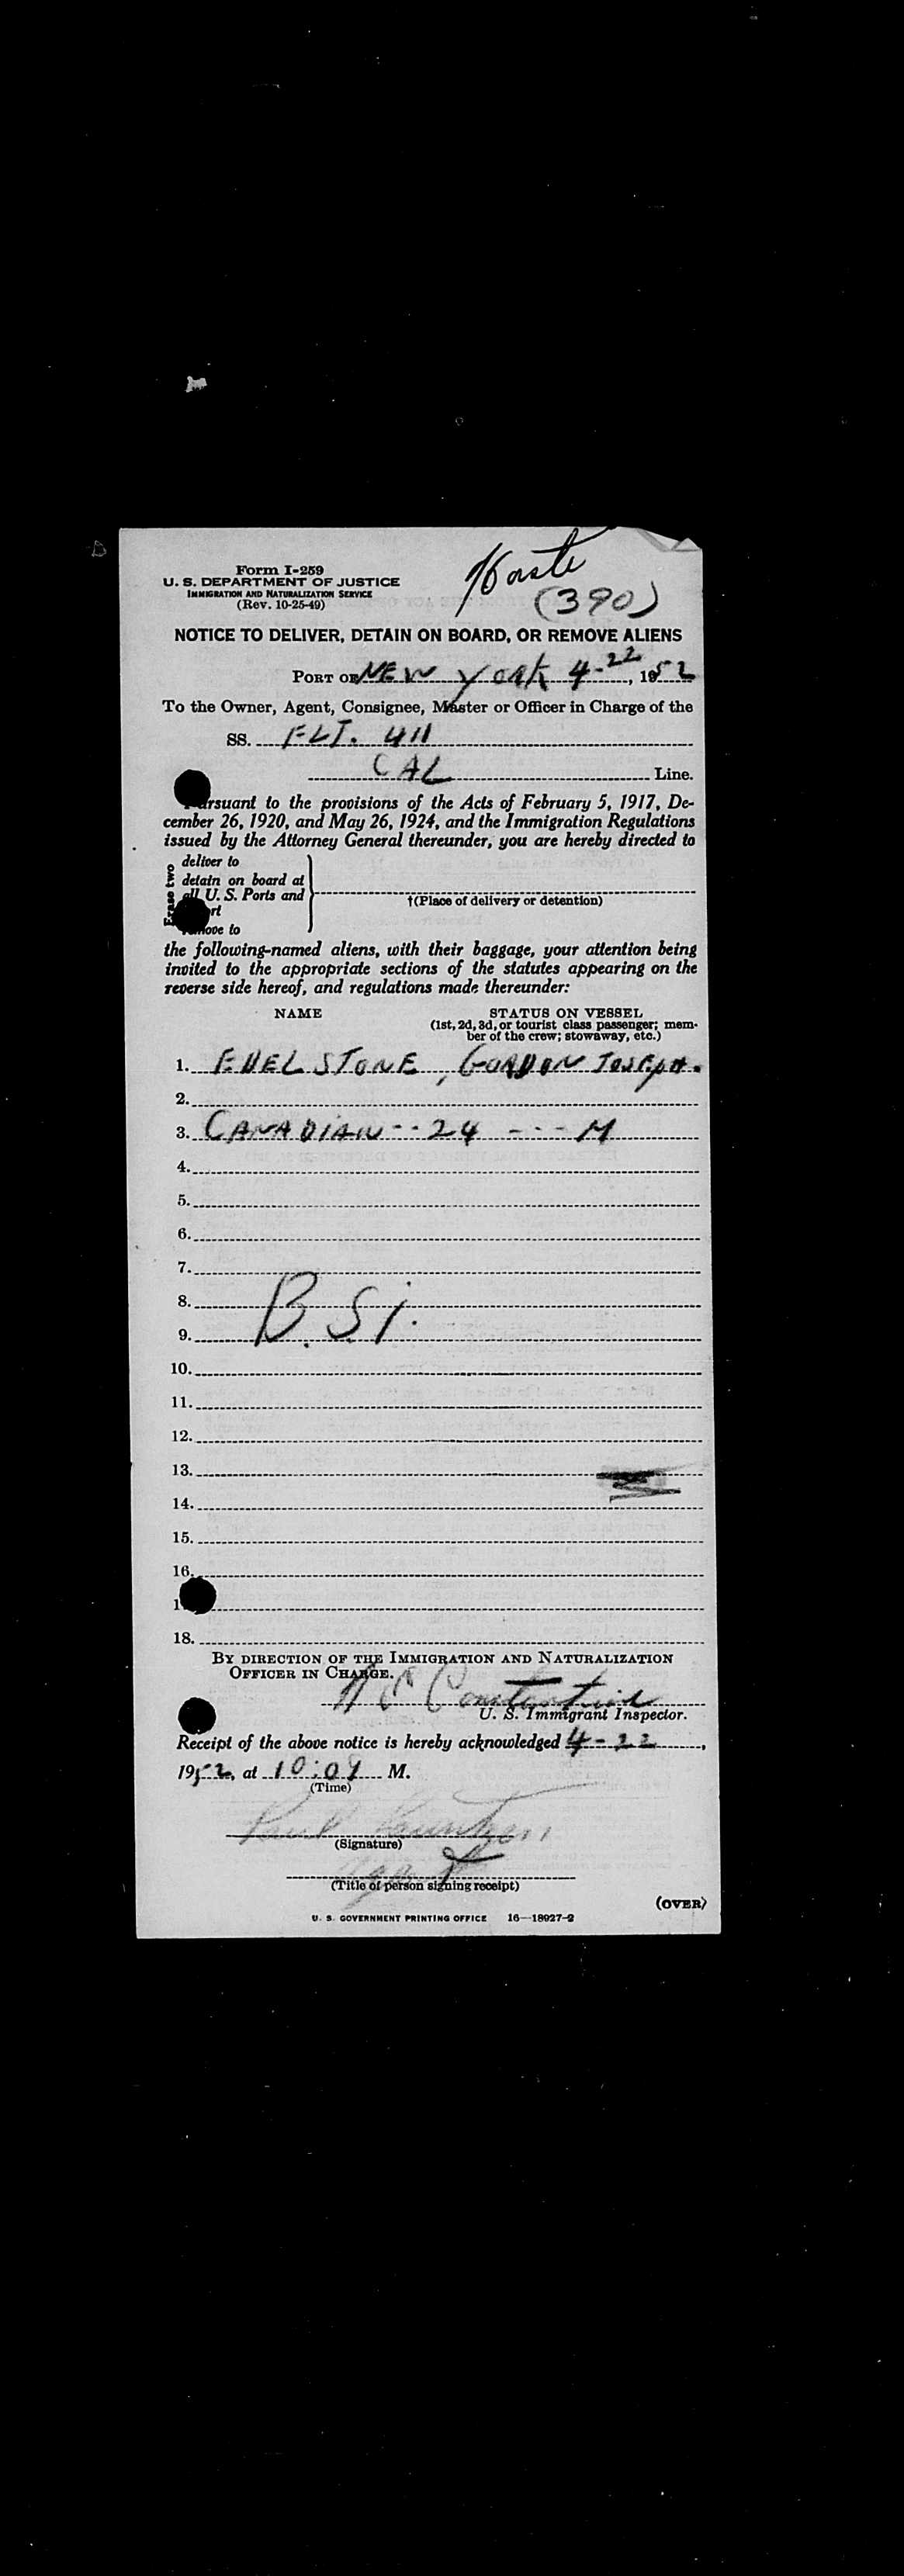 Form I-259
U. S. DEPARTMENT OF JUSTICE
IMMIGRATION AND NATURALIZATION SERVICE
(Rev. 10-25-49)
(390)
NOTICE TO DELIVER, DETAIN ON BOARD, OR REMOVE ALIENS
PORT OF NEW York 4-22, 1952
To the Owner, Agent, Consignee, Master or Officer in Charge of the
SS. FLT. 411
CAL Line.
rsuant to the provisions of the Acts of February 5, 1917, De-
cember 26, 1920, and May 26, 1924, and the Immigration Regulations
issued by the Attorney General thereunder, you are hereby directed to
Erase two
deliver to
detain on board at
all U. S. Ports and
rt
move to
†(Place of delivery or detention)
the following-named aliens, with their baggage, your attention being
invited to the appropriate sections of the statutes appearing on the
reverse side hereof, and regulations made thereunder:
NAME STATUS ON VESSEL
(1st, 2d, 3d, or tourist class passenger; mem-
ber of the crew; stowaway, etc.)
1. EDELSTONE, GORDON JOSEPH.
2.
3. CANADIAN -- 24 --- M
4.
5.
6.
7.
8.
B.S.i.
9.
10.
11.
12.
13.
14.
15.
16.
1
18.
BY DIRECTION OF THE IMMIGRATION AND NATURALIZATION
OFFICER IN CHARGE.
U. S. Immigrant Inspector.
Receipt of the above notice is hereby acknowledged 4-22,
1952, at 10:09 M.
(Time)
Paul
(Signature)
Agent
(Title of person signing receipt)
(OVER)
U. S. GOVERNMENT PRINTING OFFICE 16—18927-2